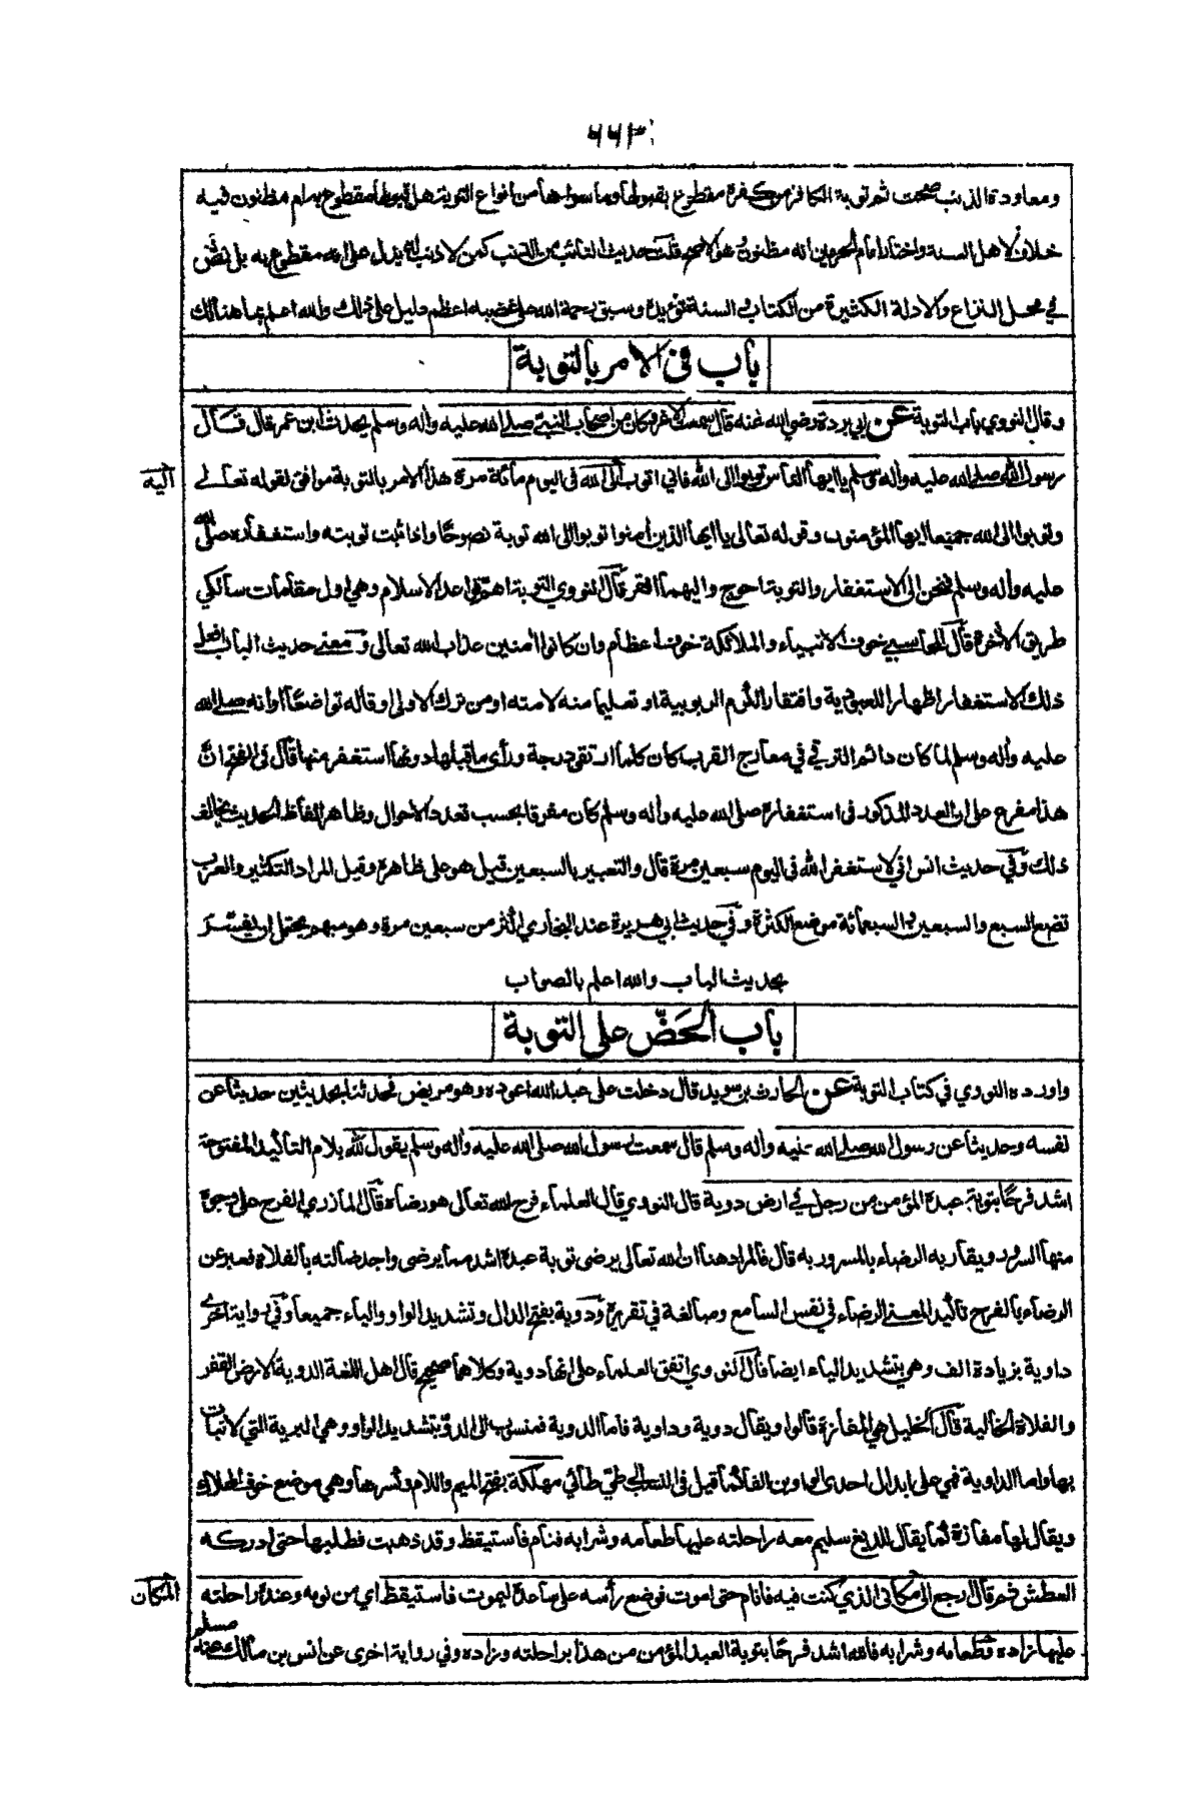 ٦٦٣
ومعاودة الذنب صحت ثم توبة الكافر من كفره مقطوع بقبولها وما سواها من انواع التوبة هل قبولها مقطوع به ام مظنون فيه
خلاف لاهل السنة واختار امام الحرمين انه مظنون وهو الاصح قلت حديث التائب من الذنب كمن لا ذنب له يدل على انه مقطوع به بل نص
في محل النزاع والادلة الكثيرة من الكتاب والسنة تؤيده وسبق رحمة الله على غضبه اعظم دليل على ذلك والله اعلم بما هنالك
باب في الامر بالتوبة
وقال النووي باب التوبة عن ابي بردة رضي الله عنه قال سمعت الاغر وكان من اصحاب النبي صلى الله عليه واله وسلم يحدث ابن عمر قال قال
رسول الله صلى الله عليه واله وسلم يا ايها الناس توبوا الى الله فاني اتوب الى الله في اليوم مائة مرة هذا الامر بالتوبة موافق لقوله تعالى
اليه
وتوبوا الى الله جميعا ايها المؤمنون وقوله تعالى يا ايها الذين امنوا توبوا الى الله توبة نصوحا واذا ثبت توبته واستغفاره صلى الله
عليه واله وسلم فنحن الى الاستغفار والتوبة احوج واليهما افقر قال النووي التوبة اهم قواعد الاسلام وهي اول مقامات سالكي
طريق الاخرة قال المحاسبي خوف الانبياء والملائكة خوف اعظام وان كانوا امنين عذاب الله تعالى ومعنى حديث الباب افعل
ذلك الاستغفار اظهارا للعبودية وافتقارا لكرم الربوبية او تعليما منه لامته او من ترك الاولى او قاله تواضعا او انه صلى الله
عليه واله وسلم لما كان دائم الترقي في معارج القرب كان كلما ارتقى درجة ورأى ما قبلها دونها استغفر منها قال في الفتح ان
هذا مفرع على ان العدد المذكور في استغفاره صلى الله عليه واله وسلم كان مفرقا بحسب تعدد الاحوال وظاهر الفاظ الحديث يخالف
ذلك وفي حديث انس اني لاستغفر الله في اليوم سبعين مرة قال والتعبير بالسبعين قيل هو على ظاهره وقيل المراد التكثير والعرب
تضع السبع والسبعين والسبعمائة موضع الكثرة وفي حديث ابي هريرة عند البخاري اكثر من سبعين مرة وهو مبهم يحتمل ان يفسر
بحديث الباب والله اعلم بالصواب
باب الحَضِّ على التوبة
واورده النووي في كتاب التوبة عن الحارث بن سويد قال دخلت على عبد الله اعوده وهو مريض فحدثنا بحديثين حديثا عن
نفسه وحديثا عن رسول الله صلى الله عليه واله وسلم قال سمعت رسول الله صلى الله عليه واله وسلم يقول لله بلام التأكيد المفتوحة
اشد فرحا بتوبة عبده المؤمن من رجل في ارض دوية قال النووي قال العلماء فرح الله تعالى هو رضاه قال المازري الفرح على وجوه
منها السرور ويقاربه الرضاء بالمسرور به قال فالمراد هنا ان الله تعالى يرضى توبة عبده اشد مما يرضى واجد ضالته بالفلاة فعبر عن
الرضاء بالفرح تأكيدا لمعنى الرضاء في نفس السامع ومبالغة في تقريره ودوية بفتح الدال وتشديد الواو والياء جميعا وفي رواية اخرى
داوية بزيادة الف وهي بتشديد الياء ايضا قال النووي اتفق العلماء على انها دوية وكلاهما صحيح قال اهل اللغة الدوية الارض القفر
والفلاة الخالية قال الخليل هي المفازة قالوا ويقال دوية وداوية فاما الدوية فمنسوب الى الدوّ بتشديد الواو وهي البرية التي لا نبات
بها واما الداوية فهي على ابدال احدى الواوين الفا كما قيل في النسب الى طيّ طائي مهلكة بفتح الميم واللام وكسرها وهي موضع خوف الهلاك
ويقال لها مفازة كما يقال للديغ سليم معه راحلته عليها طعامه وشرابه فنام فاستيقظ وقد ذهبت فطلبها حتى ادركه
العطش ثم قال ارجع الى مكاني الذي كنت فيه فانام حتى اموت فوضع رأسه على ساعده ليموت فاستيقظ اي من نومه وعنده راحلته
المكان
عليها زاده وطعامه وشرابه فالله اشد فرحا بتوبة العبد المؤمن من هذا براحلته وزاده وفي رواية اخرى عن انس بن مالك عند
مسلم